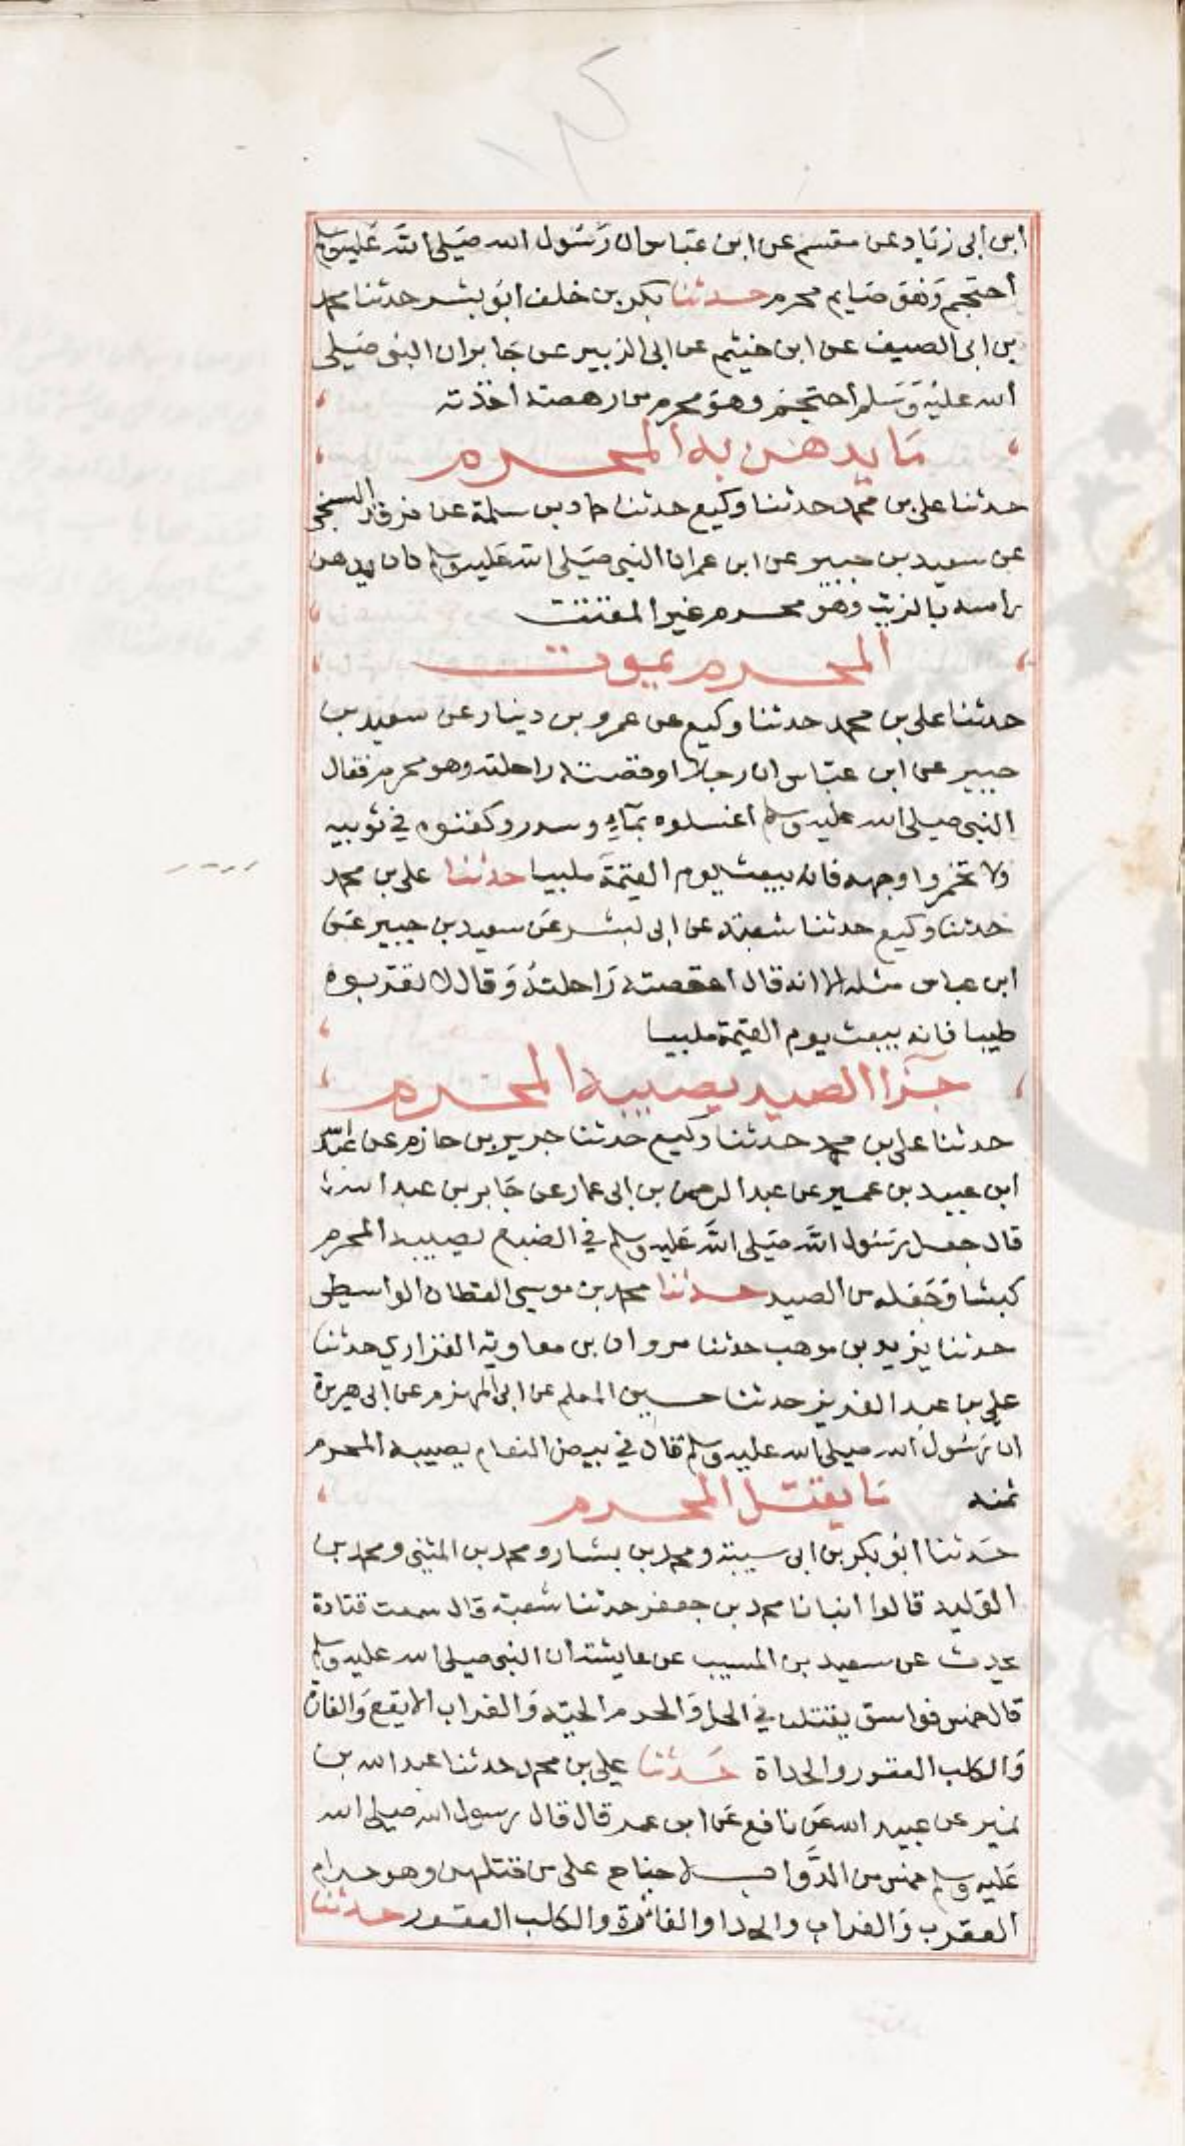 ابن ابى زياد عن مقسم عن ابن عباس ان رسول الله صلى الله عليه وسلم
احتجم وهو صايم محرم حدثنا بكر بن خلف ابو بشر حدثنا محمد
بن ابى الصيف عن ابن خيثم عن ابى الزبير عن جابر ان النبى صلى
الله عليه وسلم احتجم وهو محرم من رهصة اخذته
ما يدهن به المحرم
حدثنا على بن محمد حدثنا وكيع حدثنا حماد بن سلمة عن فرقد السبخى
عن سعيد بن جبير عن ابن عمر ان النبى صلى الله عليه وسلم كان يدهن
راسه بالزيت وهو محرم غير المقتت
المحرم يموت
حدثنا على بن محمد حدثنا وكيع عن عمرو بن دينار عن سعيد بن
جبير عن ابن عباس ان رجلا اوقصته راحلته وهو محرم فقال
النبى صلى الله عليه وسلم اغسلوه بماء وسدر وكفنوه في ثوبيه
ولا تخمروا وجهه فانه يبعث يوم القيمة ملبيا حدثنا على بن محمد
حدثنا وكيع حدثنا شعبة عن ابى بشر عن سعيد بن جبير عن
ابن عباس مثله الا انه قال اعقصته راحلته وقال لا تقربوه
طيبا فانه يبعث يوم القيمة ملبيا
جزاا الصيد يصيبه المحرم
حدثنا على بن محمد حدثنا وكيع حدثنا جرير بن حازم عن عبد الله
ابن عبيد بن عمير عن عبد الرحمن بن ابى عمار عن جابر بن عبد الله
قال جعل رسول الله صلى الله عليه وسلم في الضبع يصيبه المحرم
كبشا وجعله من الصيد حدثنا محمد بن موسى القطان الواسطى
حدثنا يزيد بن موهب حدثنا مروان بن معاوية الفزاري حدثنا
على بن عبد العزيز حدثنا حسين المعلم عن ابى المهزم عن ابى هريرة
ان رسول الله صلى الله عليه وسلم قال في بيض النعام يصيبه المحرم
ثمنه ما يقتل المحرم
حدثنا ابو بكر بن ابى شيبة ومحمد بن بشار ومحمد بن المثنى ومحمد بن
الوليد قالوا انبانا محمد بن جعفر حدثنا شعبة قال سمعت قتادة
يحدث عن سعيد بن المسيب عن عايشة ان النبى صلى الله عليه وسلم
قال خمس فواسق يقتلن في الحل والحرم الحية والغراب الابقع والفارة
والكلب العقور والحداة حدثنا على بن محمد حدثنا عبد الله بن
نمير عن عبيد الله عن نافع عن ابن عمر قال قال رسول الله صلى الله
عليه وسلم خمس من الدواب لا جناح على من قتلهن وهو حرام
العقرب والغراب والحدا والفارة والكلب العقور حدثنا